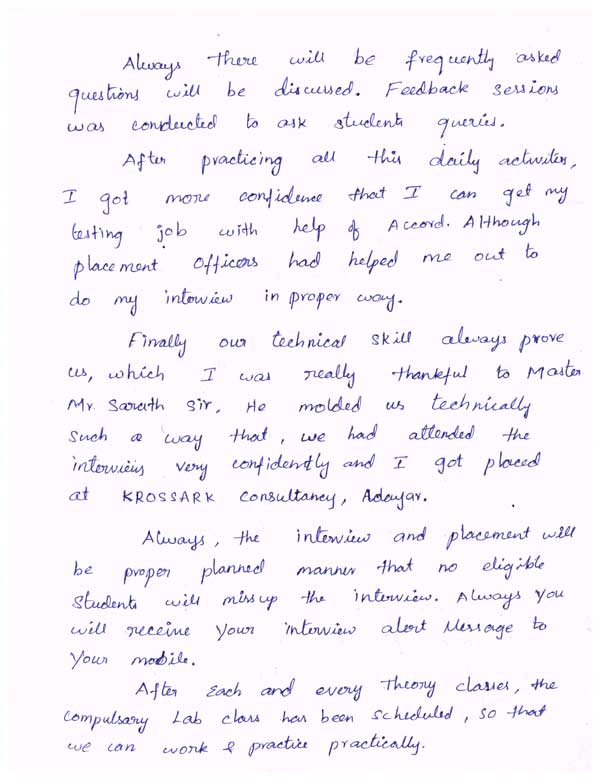 Always there will be frequently asked
questions will be discussed. Feedback sessions
was conducted to ask students queries.
After practicing all this daily activites,
I got more confidence that I can get my
testing job with help of Accord. Although
placement Officers had helped me out to
do my interview in proper way.
Finally our technical skill always prove
us, which I was really thankful to Master
Mr. Sarath Sir. He molded us technically
Such a way that, we had attended the
interviews very confidently and I got placed
at KROSSARK Consultancy, Adayar.
Always, the interview and placement will
be proper planned manner that no eligible
Students will missup the interview. Always you
will receive Your interview alert Message to
Your mobile.
After Each and every Theory classes, the
Compulsary Lab class has been Scheduled, so that
we can work & practice practically.